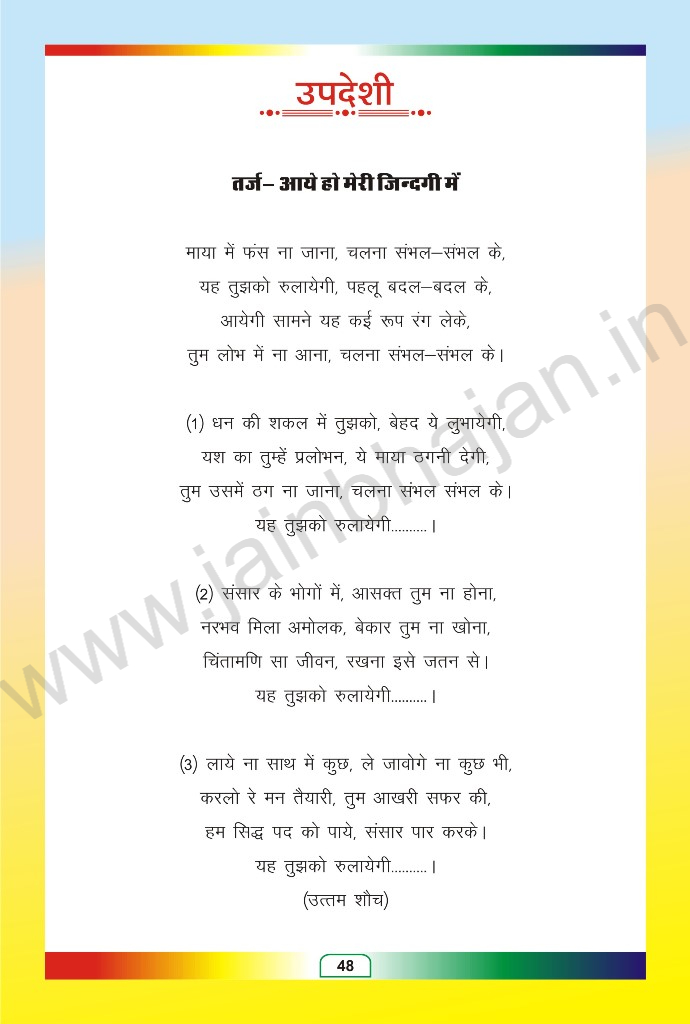 उपदेशी
तर्ज– आये हो मेरी जिन्दगी में
माया में फंस ना जाना, चलना संभल–संभल के,
यह तुझको रुलायेगी, पहलू बदल–बदल के,
आयेगी सामने यह कई रूप रंग लेके,
तुम लोभ में ना आना, चलना संभल–संभल के।
(1) धन की शकल में तुझको, बेहद ये लुभायेगी,
यश का तुम्हें प्रलोभन, ये माया ठगनी देगी,
तुम उसमें ठग ना जाना, चलना संभल संभल के।
यह तुझको रुलायेगी..........।
(2) संसार के भोगों में, आसक्त तुम ना होना,
नरभव मिला अमोलक, बेकार तुम ना खोना,
चिंतामणि सा जीवन, रखना इसे जतन से।
यह तुझको रुलायेगी..........।
(3) लाये ना साथ में कुछ, ले जावोगे ना कुछ भी,
करलो रे मन तैयारी, तुम आखरी सफर की,
हम सिद्ध पद को पाये, संसार पार करके।
यह तुझको रुलायेगी..........।
(उत्तम शौच)
48
www.jainbhajan.in